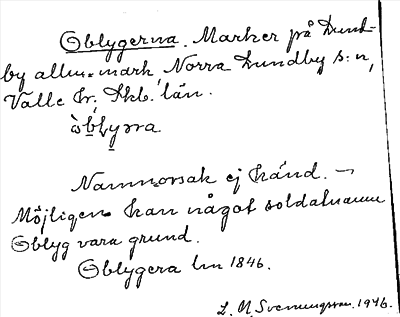 Oblygerna. Marker på Lund-
by allm.mark, Norra Lundby s:n,
Valle hr, Skb. län.
òblyɜra.
Namnorsak ej känd. —
Möjligen kan något soldatnamn
Oblyg vara grund.
Oblygera lm 1846.
L. N. Svenungsson. 1946.